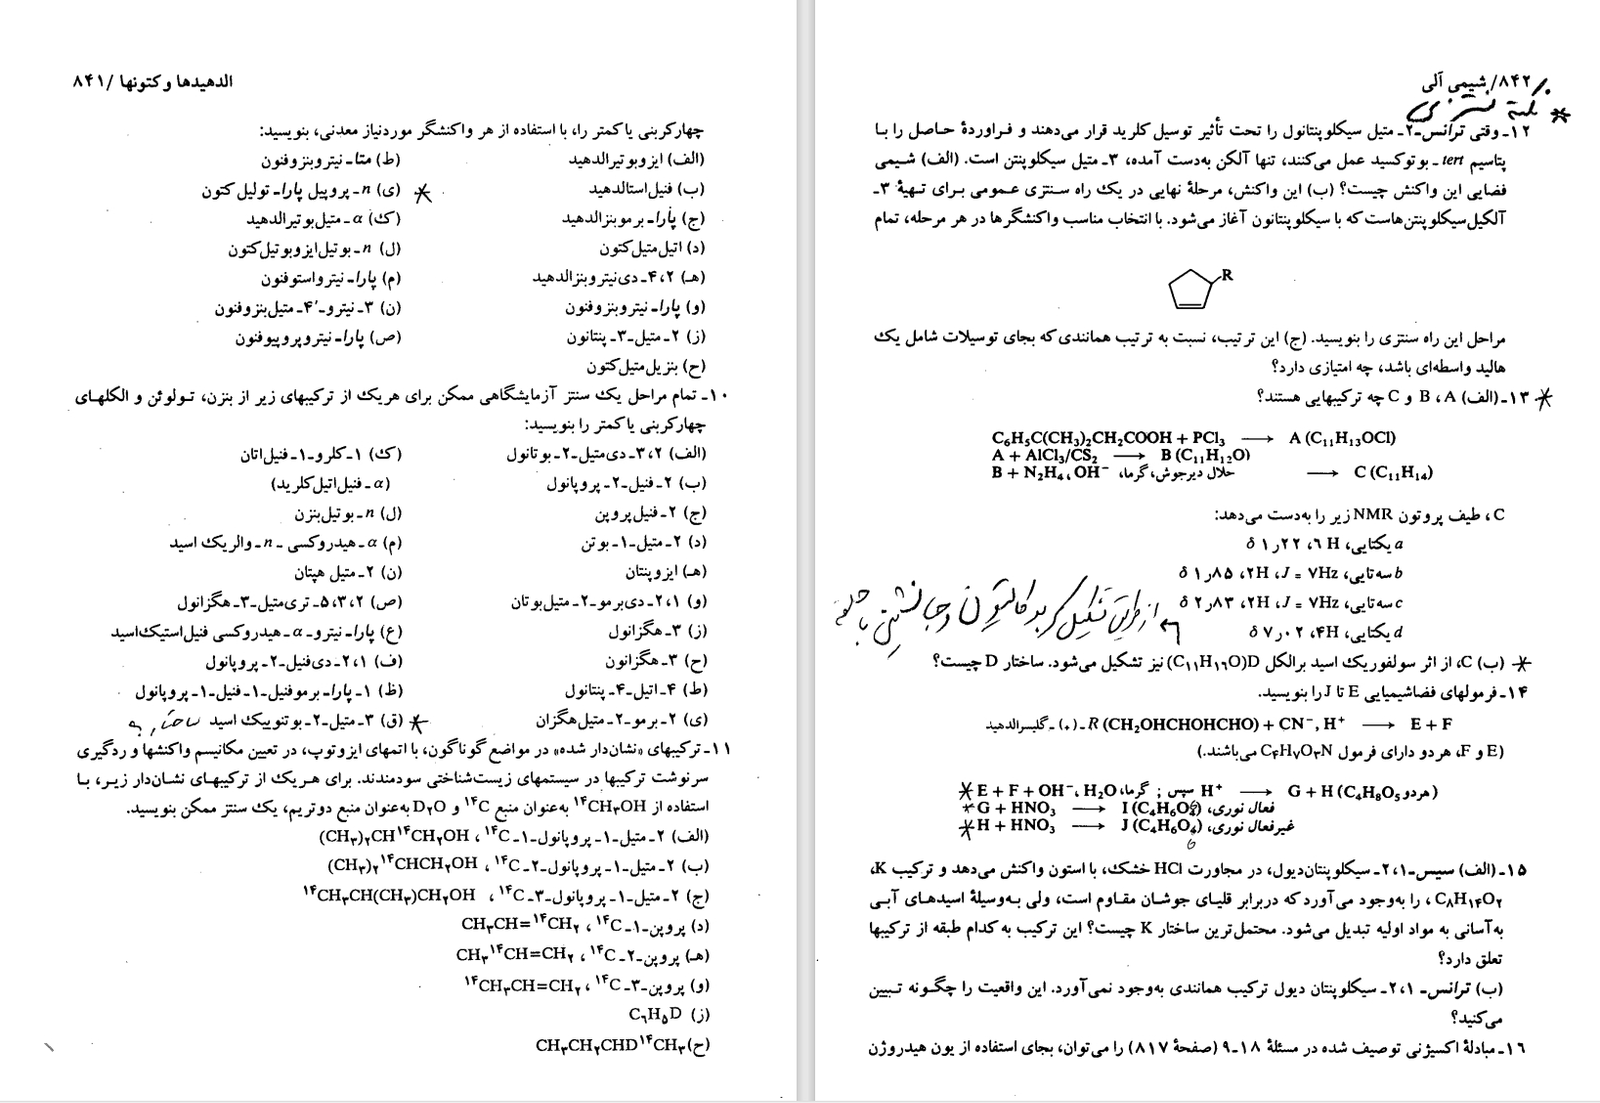 الدهیدها و کتونها /۸۴۱
چهارکربنی یا کمتر را، با استفاده از هر واکنشگر موردنیاز معدنی، بنویسید:
(الف) ایزوبوتیرالدهید
(ب) فنیل‌استالدهید
(ج) پارا- بروموبنزالدهید
(د) اتیل‌متیل‌کتون
(هـ) ۲،۴-دی‌نیتروبنزالدهید
(و) پارا- نیتروبنزوفنون
(ز) ۲-متیل-۳-پنتانون
(ح) بنزیل‌متیل‌کتون
(ط) متا- نیتروبنزوفنون
(ی) n- پروپیل پارا- تولیل‌کتون
(ک) α-متیل‌بوتیرالدهید
(ل) n-بوتیل‌ایزوبوتیل‌کتون
(م) پارا- نیترواستوفنون
(ن) ۳-نیترو-۴′-متیل‌بنزوفنون
(ص) پارا- نیتروپروپیوفنون
۱۰- تمام مراحل یک سنتز آزمایشگاهی ممکن برای هریک از ترکیبهای زیر از بنزن، تولوئن و الکلهای
چهارکربنی یا کمتر را بنویسید:
(الف) ۲،۳-دی‌متیل-۲-بوتانول
(ب) ۲-فنیل-۲-پروپانول
(ج) ۲-فنیل‌پروپن
(د) ۲-متیل-۱-بوتن
(هـ) ایزوپنتان
(و) ۱،۲-دی‌برمو-۲-متیل‌بوتان
(ز) ۳-هگزانول
(ح) ۳-هگزانون
(ط) ۴-اتیل-۴-پنتانول
(ی) ۲-برمو-۲-متیل‌هگزان
(ک) ۱-کلرو-۱-فنیل‌اتان
(α-فنیل‌اتیل‌کلرید)
(ل) n-بوتیل‌بنزن
(م) α-هیدروکسی-n-والریک اسید
(ن) ۲-متیل هپتان
(ص) ۲،۳،۵-تری‌متیل-۳-هگزانول
(ع) پارا-نیترو-α-هیدروکسی فنیل‌استیک‌اسید
(ف) ۱،۲-دی‌فنیل-۲-پروپانول
(ظ) ۱-پارا-برموفنیل-۱-فنیل-۱-پروپانول
(ق) ۳-متیل-۲-بوتنوییک اسید
۱۱- ترکیبهای «نشان‌دار شده» در مواضع گوناگون، با اتمهای ایزوتوپ، در تعیین مکانیسم واکنشها و ردگیری
سرنوشت ترکیبها در سیستمهای زیست‌شناختی سودمندند. برای هریک از ترکیبهای نشان‌دار زیر، با
استفاده از ¹⁴CH₃OH به‌عنوان منبع ¹⁴C و D₂O به‌عنوان منبع دوتریم، یک سنتز ممکن بنویسید.
(الف) ۲-متیل-۱-پروپانول-۱-¹⁴C، (CH₃)₂CH¹⁴CH₂OH
(ب) ۲-متیل-۱-پروپانول-۲-¹⁴C، (CH₃)₂¹⁴CHCH₂OH
(ج) ۲-متیل-۱-پروپانول-۳-¹⁴C، ¹⁴CH₃CH(CH₃)CH₂OH
(د) پروپن-۱-¹⁴C، CH₃CH=¹⁴CH₂
(هـ) پروپن-۲-¹⁴C، CH₃¹⁴CH=CH₂
(و) پروپن-۳-¹⁴C، ¹⁴CH₃CH=CH₂
(ز) C₆H₅D
(ح) CH₃CH₂CHD¹⁴CH₃
۸۴۲/ شیمی آلی
۱۲- وقتی ترانس-۲-متیل سیکلوپنتانول را تحت تأثیر توسیل کلرید قرار می‌دهند و فراوردهٔ حاصل را با
پتاسیم tert-بوتوکسید عمل می‌کنند، تنها آلکن به‌دست آمده، ۳-متیل سیکلوپنتن است. (الف) شیمی
فضایی این واکنش چیست؟ (ب) این واکنش، مرحلهٔ نهایی در یک راه سنتزی عمومی برای تهیهٔ ۳-
آلکیل‌سیکلوپنتن‌هاست که با سیکلوپنتانون آغاز می‌شود. با انتخاب مناسب واکنشگرها در هر مرحله، تمام
R
مراحل این راه سنتزی را بنویسید. (ج) این ترتیب، نسبت به ترتیب همانندی که بجای توسیلات شامل یک
هالید واسطه‌ای باشد، چه امتیازی دارد؟
۱۳-(الف) A، B و C چه ترکیبهایی هستند؟
C₆H₅C(CH₃)₂CH₂COOH + PCl₃ ⟶ A (C₁₁H₁₃OCl)
A + AlCl₃/CS₂ ⟶ B (C₁₁H₁₂O)
B + N₂H₄، OH⁻ حلال دیرجوش، گرما، ⟶ C (C₁₁H₁₄)
C، طیف پروتون NMR زیر را به‌دست می‌دهد:
a یکتایی، ۶H، ۱٫۲۲ δ
b سه‌تایی، J = ۷Hz، ۲H، ۱٫۸۵ δ
c سه‌تایی، J = ۷Hz، ۲H، ۲٫۸۳ δ
d یکتایی، ۴H، ۷٫۰۲ δ
از طریق تشکیل کربوکاتیون و جانشینی با حلقه
(ب) C، از اثر سولفوریک اسید برالکل D(C₁₁H₁₆O) نیز تشکیل می‌شود. ساختار D چیست؟
۱۴- فرمولهای فضاشیمیایی E تا J را بنویسید.
R-(+)-گلیسرالدهید (CH₂OHCHOHCHO) + CN⁻, H⁺ ⟶ E + F
(E و F، هردو دارای فرمول C₄H₇O₃N می‌باشند.)
E + F + OH⁻، H₂O گرما، ; سپس H⁺ ⟶ G + H (C₄H₈O₅ هردو)
G + HNO₃ ⟶ I (C₄H₆O₆) فعال نوری،
H + HNO₃ ⟶ J (C₄H₆O₆) غیرفعال نوری،
6
۱۵-(الف) سیس-۱،۲-سیکلوپنتان‌دیول، در مجاورت HCl خشک، با استون واکنش می‌دهد و ترکیب K،
C₈H₁₄O₂، را به‌وجود می‌آورد که دربرابر قلیای جوشان مقاوم است، ولی به‌وسیلهٔ اسیدهای آبی
به‌آسانی به مواد اولیه تبدیل می‌شود. محتمل‌ترین ساختار K چیست؟ این ترکیب به کدام طبقه از ترکیبها
تعلق دارد؟
(ب) ترانس-۱،۲-سیکلوپنتان دیول ترکیب همانندی به‌وجود نمی‌آورد. این واقعیت را چگونه تبیین
می‌کنید؟
۱۶- مبادلهٔ اکسیژنی توصیف شده در مسئلهٔ ۱۸-۹ (صفحهٔ ۸۱۷) را می‌توان، بجای استفاده از یون هیدروژن